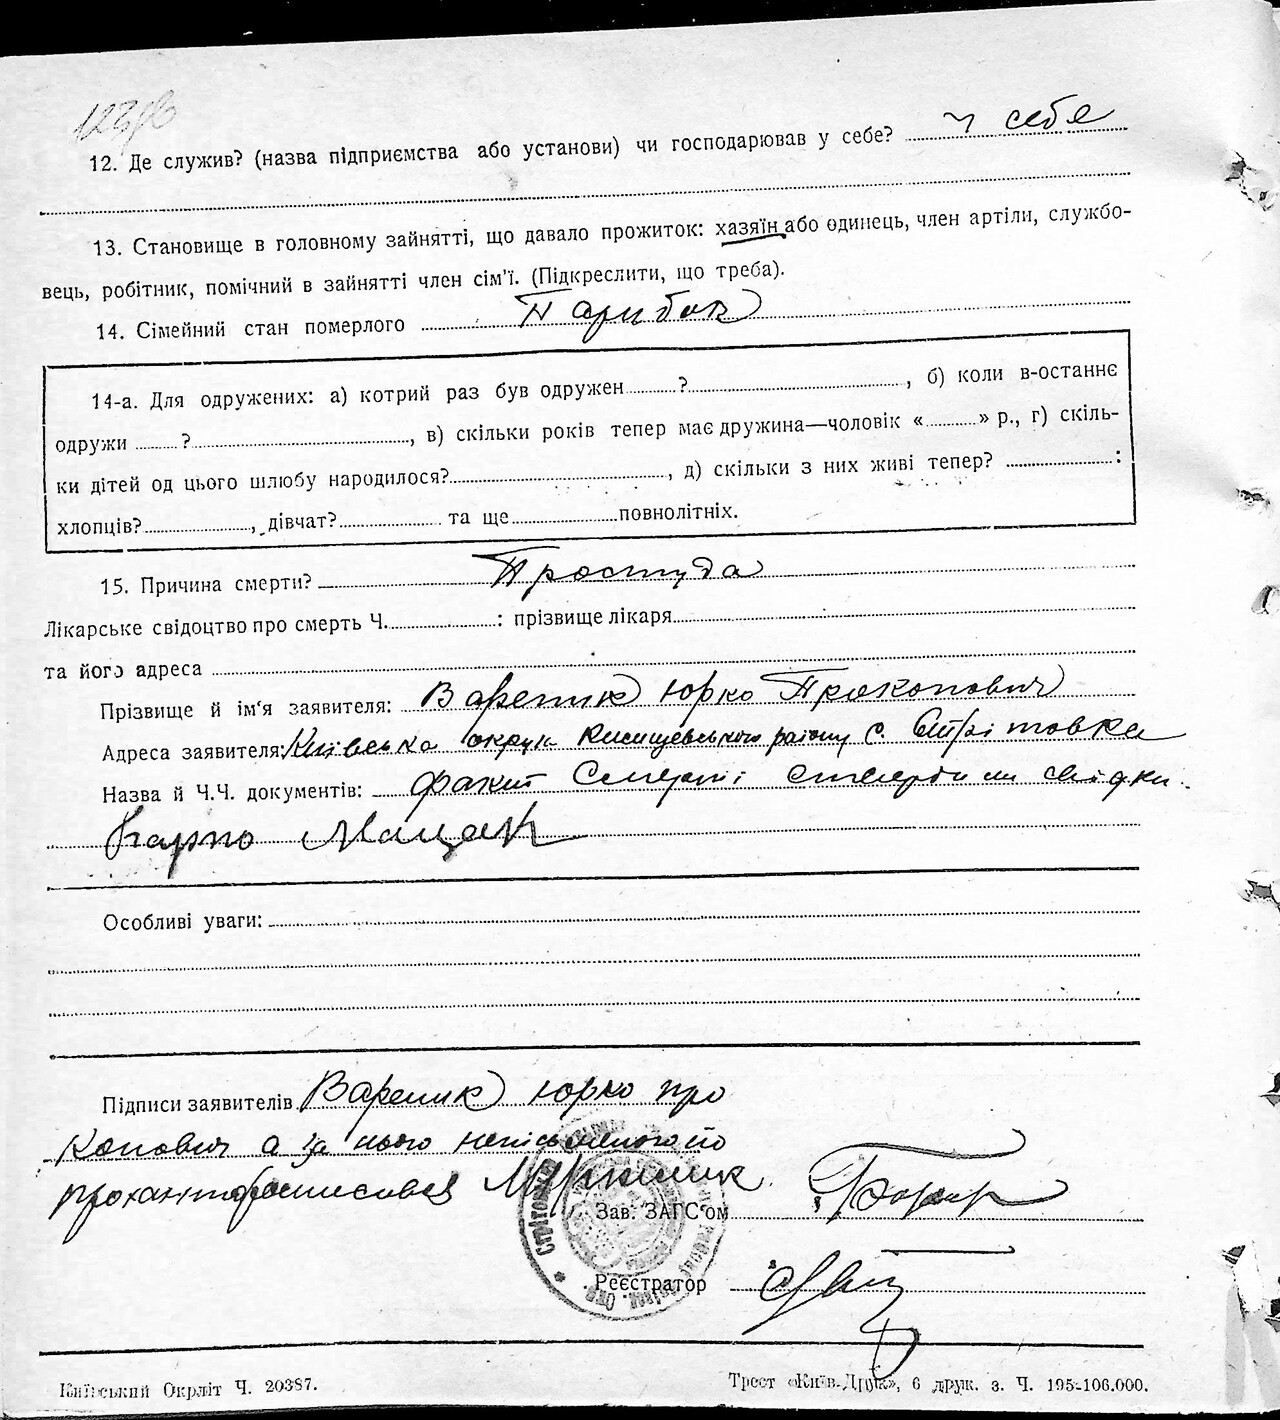 12. Де служив? (назва підприємства або установи) чи господарював у себе? у себе
13. Становище в головному зайнятті, що давало прожиток: хазяїн або одинець, член артіли, службо-
вець, робітник, помічний в зайнятті член сім'ї. (Підкреслити, що треба).
14. Сімейний стан померлого Парубок
14-а. Для одружених: а) котрий раз був одружен ? , б) коли в-останнє
одружи ? , в) скільки років тепер має дружина—чоловік « » р., г) скіль-
ки дітей од цього шлюбу народилося? , д) скільки з них живі тепер? :
хлопців? , дівчат? та ще повнолітніх.
15. Причина смерти? Простуда
Лікарське свідоцтво про смерть Ч. : прізвище лікаря
та його адреса
Прізвище й ім'я заявителя: Вареник Юрко Прокопович
Адреса заявителя: Київська округ району с. Стрітовка
Назва й Ч.Ч. документів: факт смерті ствердили свідки
Карпо Мацак
Особливі уваги:
Підписи заявителів Вареник Юрко Про
копович а за нього неписьменного по
Зав. ЗАГС'ом
Реєстратор
Київський Окрліт Ч. 20387.
Трест «Київ-Друк», 6 друк. з. Ч. 195-106.000.